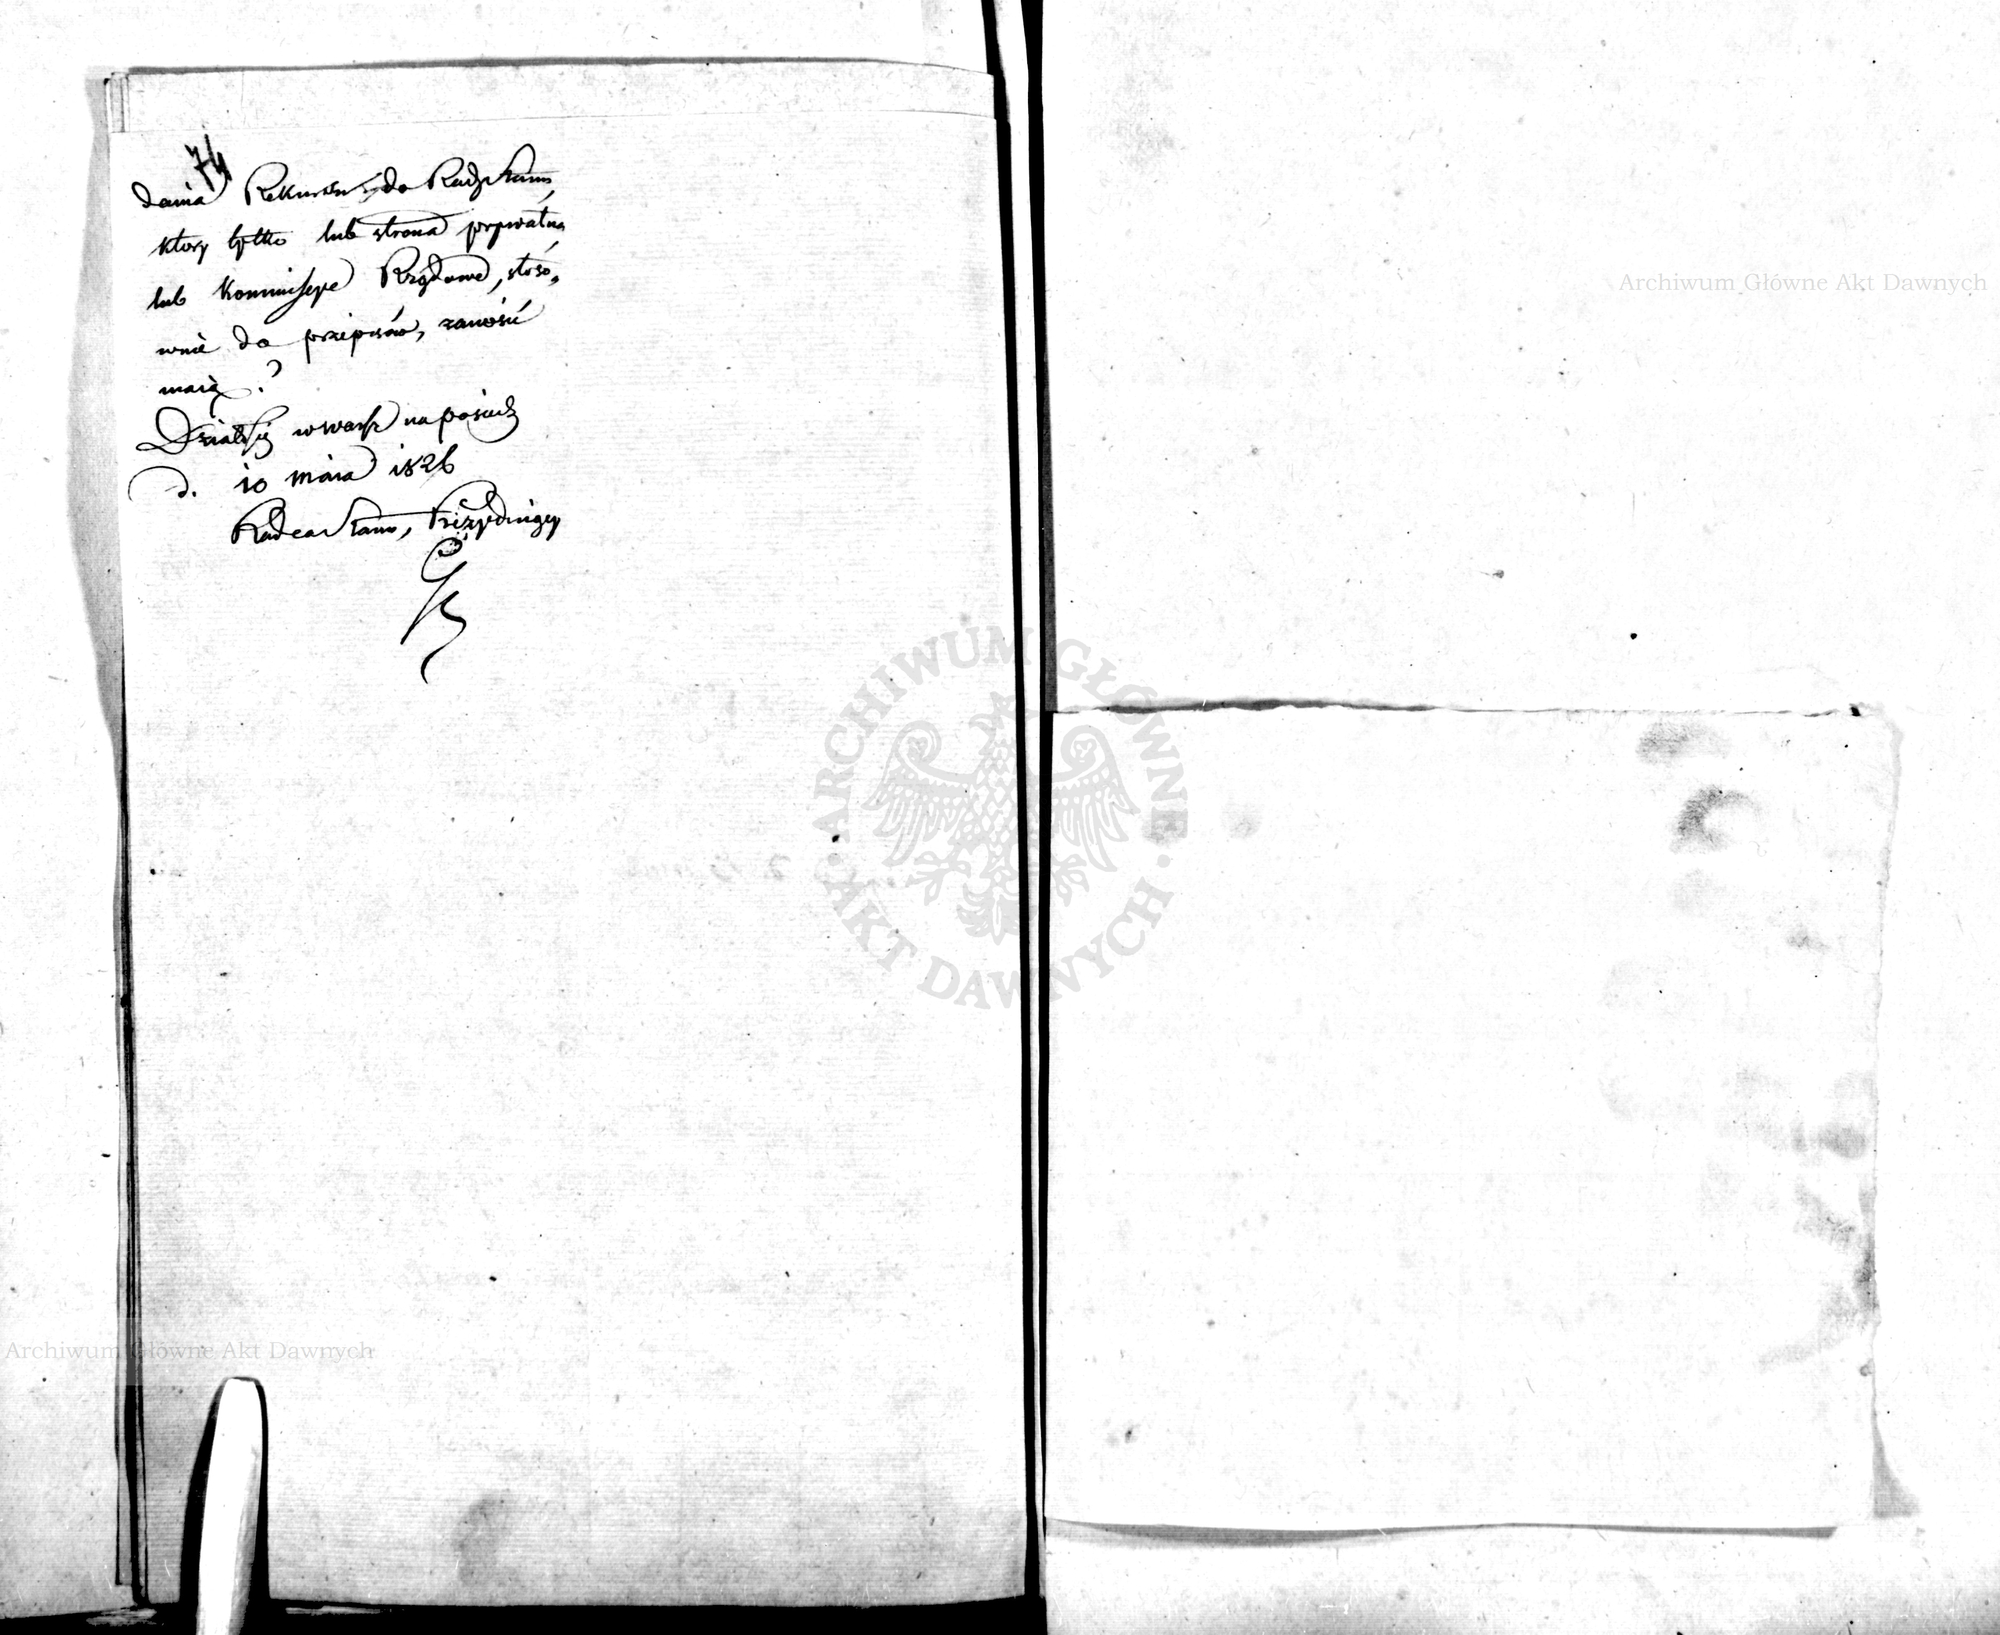 74
dania Rekursu do Rady Stanu,
ktory tylko lub strona prywatna
lub Kommissye Rządowe, stoso,
wnie do przepisów, zanosić
maią?
Działo się w Warsz na posiedz
d. 10 maia 1826
Radca Stanu, Prezyduiący
Archiwum Główne Akt Dawnych
ARCHIWUM GŁÓWNE AKT DAWNYCH
Archiwum Główne Akt Dawnych